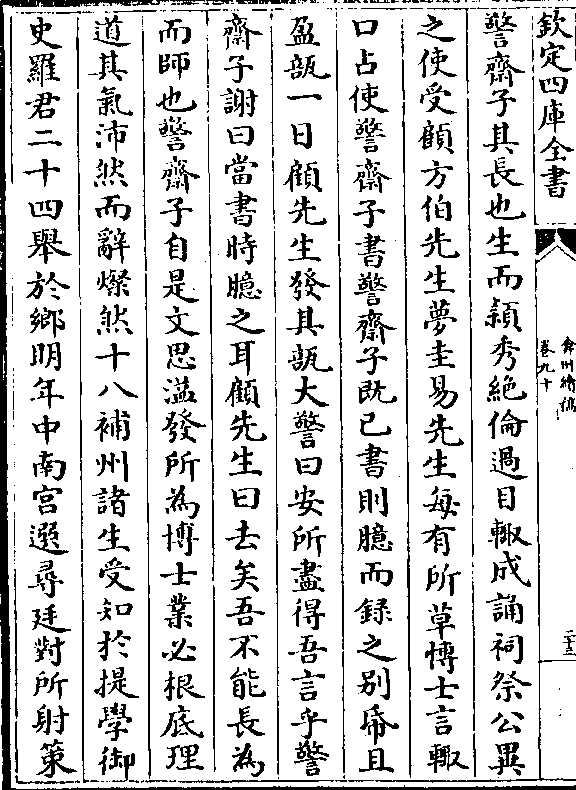 欽定四庫全書
弇州續稿
卷九十
警齋子其長也生而穎秀絶倫過目輙成誦祠祭公異
之使受顧方伯先生夢圭易先生每有所草博士言輙
口占使警齋子書警齋子既已書則臆而録之别帋且
盈瓿一日顧先生發其瓿大警曰安所盡得吾言乎警
齋子謝曰當書時臆之耳顧先生曰去矣吾不能長為
而師也警齋子自是文思溢發所為博士業必根底理
道其氣沛然而辭燦然十八補州諸生受知於提學御
史羅君二十四舉於鄉明年中南宫選尋廷對所射策